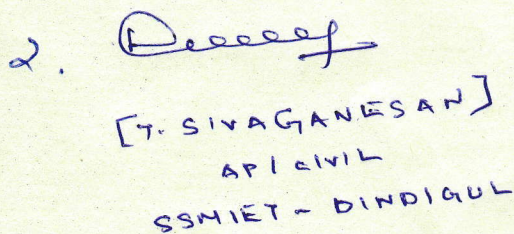 2.
[T. SIVAGANESAN]
AP / CIVIL
SSMIET - DINDIGUL